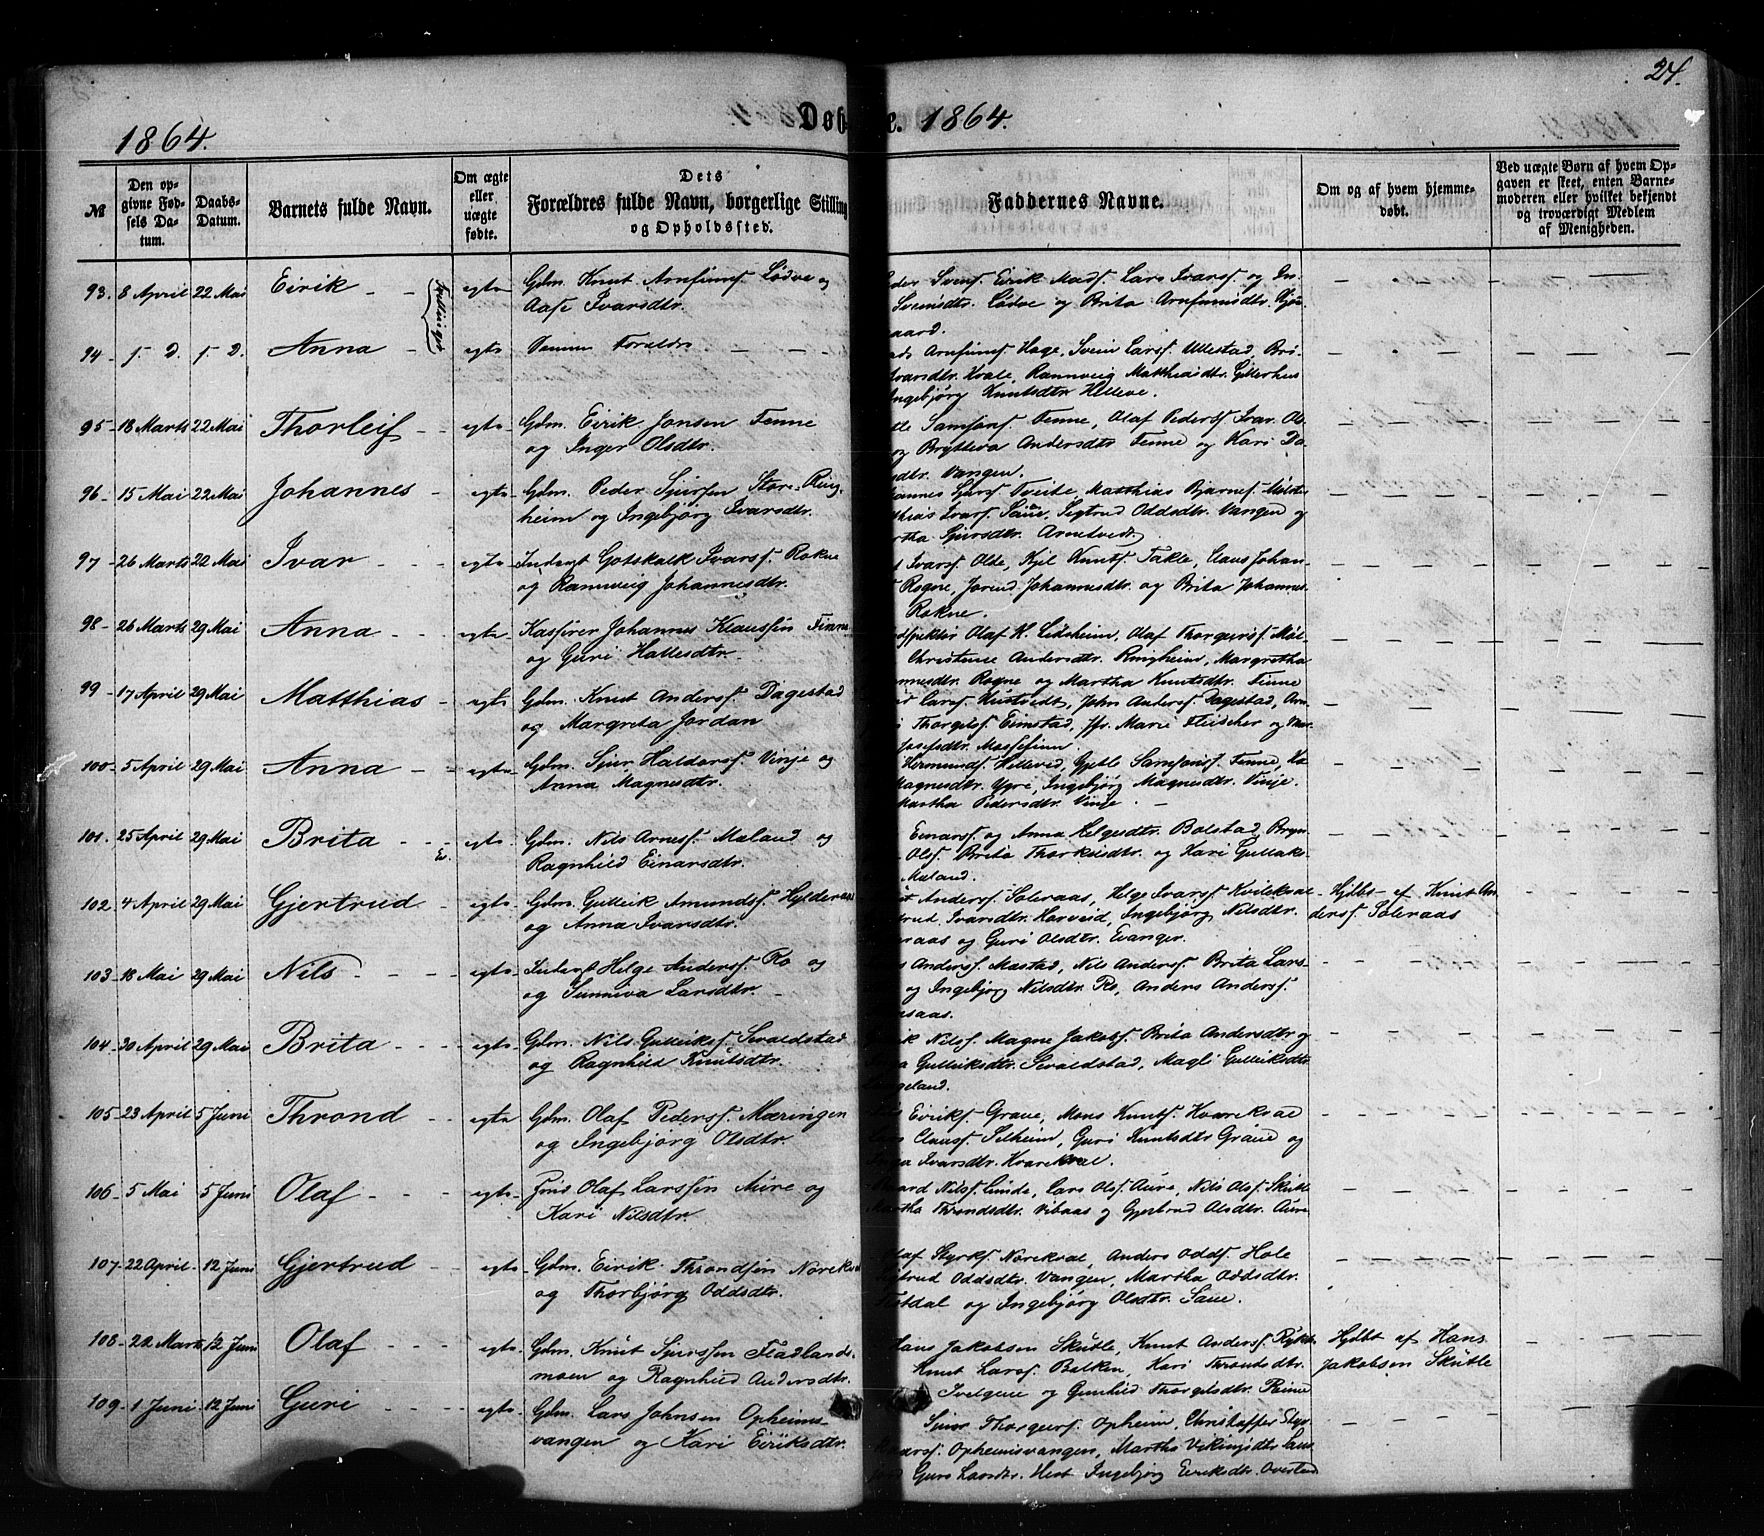 24.
1864.
Døb
e. 1864.
№
Den op-
givne Fød-
sels Da-
tum.
Daabs-
Datum.
Barnets fulde Navn.
Om ægte
eller
uægte
fødte.
Dets
Forældres fulde Navn, borgerlige Stilling
og Opholdssted.
Faddernes Navne.
Om og af hvem hjemme-
døbt.
Ved uægte Børn af hvem Op-
gaven er skeet, enten Barne-
moderen eller hvilket bekjendt
og troværdigt Medlem
af Menigheden.
93. 8 April 22 Mai Eirik - - egte Gdm. Knut Arnfinns. Lødve og
Aase Ivarsdtr.
Svens. Eirik Mads. Lars Ivars. og
Sveinsdtr. Lødve og Brita Arnfinnsdtr.
aard.
Tvillinger
94 - f. D. f. D. Anna - egte Samme Foraldre - - -
Arnfinns. Hage, Svein Lars. Ullestad, Bri-
Ivarsdtr. Kvale, Rannveig Matthiasdtr. Gitterhus
Ingebjørg Knutsdtr. Helleve.
95 - 18 Marts 22 Mai Thorleif - - egte - Gdm. Eirik Jonsen Fenne
og Inger Olsdtr.
Samsons. Fenne, Olaf Peders. Ivar Ol-
og Bryteva Andersdtr Fenne og Kari Da-
dtr. Vangen.
96 - 15 Mai 22 Mai Johannes - egte - Gdm. Peder Sjursen Store-Ring-
heim og Ingebjørg Ivarsdtr.
annes Lars. Tveite, Matthias Bjarnes. Mølster
thias Ivars. Saue, Sigtrud Oddsdtr. Vangen og
rtha Sjursdtr. Armtvedt.
97 - 26 Marts 22 Mai Ivar - - egte - Inderst Gotskalk Ivars. Rokne
og Rannveig Johannesdtr.
Ivars. Olde, Kjel Knuts. Takle, Claus Johan-
Rogne, Jorend Johannesdtr. og Brita Johannes-
Rokne.
98 - 26 Marts 29 Mai Anna - - egte - Kasserer Johannes Klaussen Finne
og Guri Hallesdtr.
Olaf K. Lidsheim, Olaf Thorgiers. Møl-
Christense Andersdtr. Ringheim, Margretha
nnesdtr. Rogne og Martha Knutsdtr. Finne
99 - 17 April 29 Mai Matthias - egte - Gdm. Knut Anders. Dagestad
og Margreta Jordan
Lars. Hustvedt, John Anders. Dagestad,
Thorgils. Eimstad, Jfr. Marie Fleischer og
Josefsdtr. Mossefinn
100 - 5 April 29 Mai Anna - - egte - Gdm. Sjur Halders. Vinje og
Anna Magnesdtr.
Hermunds. Helleve, Gjetle Samsons. Fenne,
Magnesdtr. Ygre, Ingebjørg Magnesdtr. Vinje.
Martha Pedersdtr. Vinje. -
101. 25 April 29 Mai Brita - - Ev. egte - Gdm. Nils Arnes. Mæland og
Ragnhild Einarsdtr.
Einars. og Anna Helgesdtr. Bolstad, Bryn-
Ols. Brita Thorkilsdtr. og Kari Gullaks-
Mæland.
102. 4 April 29 Mai Gjertrud - egte - Gdm. Gulleik Amunds. Hylderaas
og Anna Ivarsdtr.
Anders. Saleraas, Helge Ivars. Kvilekval
trud Ivarsdtr. Horveid, Ingebjørg Nilsdtr.
raas og Guri Olsdtr. Evanger.
Hjdbt - af Knut An
ders. Saleraas
103 - 18 Mai 29 Mai Nils - - - egte - Inderst Helge Anders. Ro og
og Sunneva Larsdtr. -
Anders. Mastad, Nils Anders. Brita Lars-
og Ingebjørg Nilsdtr. Ro, Anders Anders.
saas.
104 - 20 April 29 Mai Brita - - - egte - Gdm. Nils Gulleiks. Sevaldstad
og Ragnhild Knutsdtr.
ik Nils. Magne Jakobs. Brita Andersdtr og
a Gulleiksdtr. Sevaldstad, Magli Gulleiksdtr.
geland.
105 - 23 April 5 Juni Thrond - - egte - Gdm. Olaf Peders. Mæringen
og Ingebjørg Olsdtr.
Eiriks. Graue, Mons Knuts. Kvarekval
Claus. Selheim, Guri Knutsdtr Graue og
Ivarsdtr. Kvarekval.
106 - 5 Mai 5 Juni Olaf - - - egte - Olaf Larssen Aure og
Kari Nilsdtr.
Nils. Linde, Lars Ols. Aure, Nils Ols. Skutle
Martha Throndsdtr. Vibaas og Gjertrud Olsdtr. Aure
107 - 22 April - 12 Juni Gjertrud - - egte - Gdm. Eirik Throndsen Norekval
og Thorbjørg Oddsdtr.
Olaf Styrks. Norekval, Anders Odds. Hole
Sigtrud Oddsdtr. Vangen, Martha Oddsdtr.
dal og Ingebjørg Olsdtr. Saue.
108 - 22 Marts 12 Juni Olaf - - - egte - Gdm. Knut Sjurssen Fladlands-
moen og Ragnhild Andersdtr.
Hans Jakobsen Skutle, Knut Anders.
Knut Lars. Bolken, Kari Throndsdtr.
og Gunhild Thorgilsdtr. Rime
Hjdbt af Hans
Jakobsen Skutle
109 - 1 Juni 12 Juni Guri - - egte - Gdm. Lars Johnsen Opheims-
vangen og Kari Eiriksdtr.
Thorgiers. Opheim, Christoffer
Opheimsvangen, Martha Vikingsdtr
Guro Larsdtr. Ingebjørg Eiriksdtr.